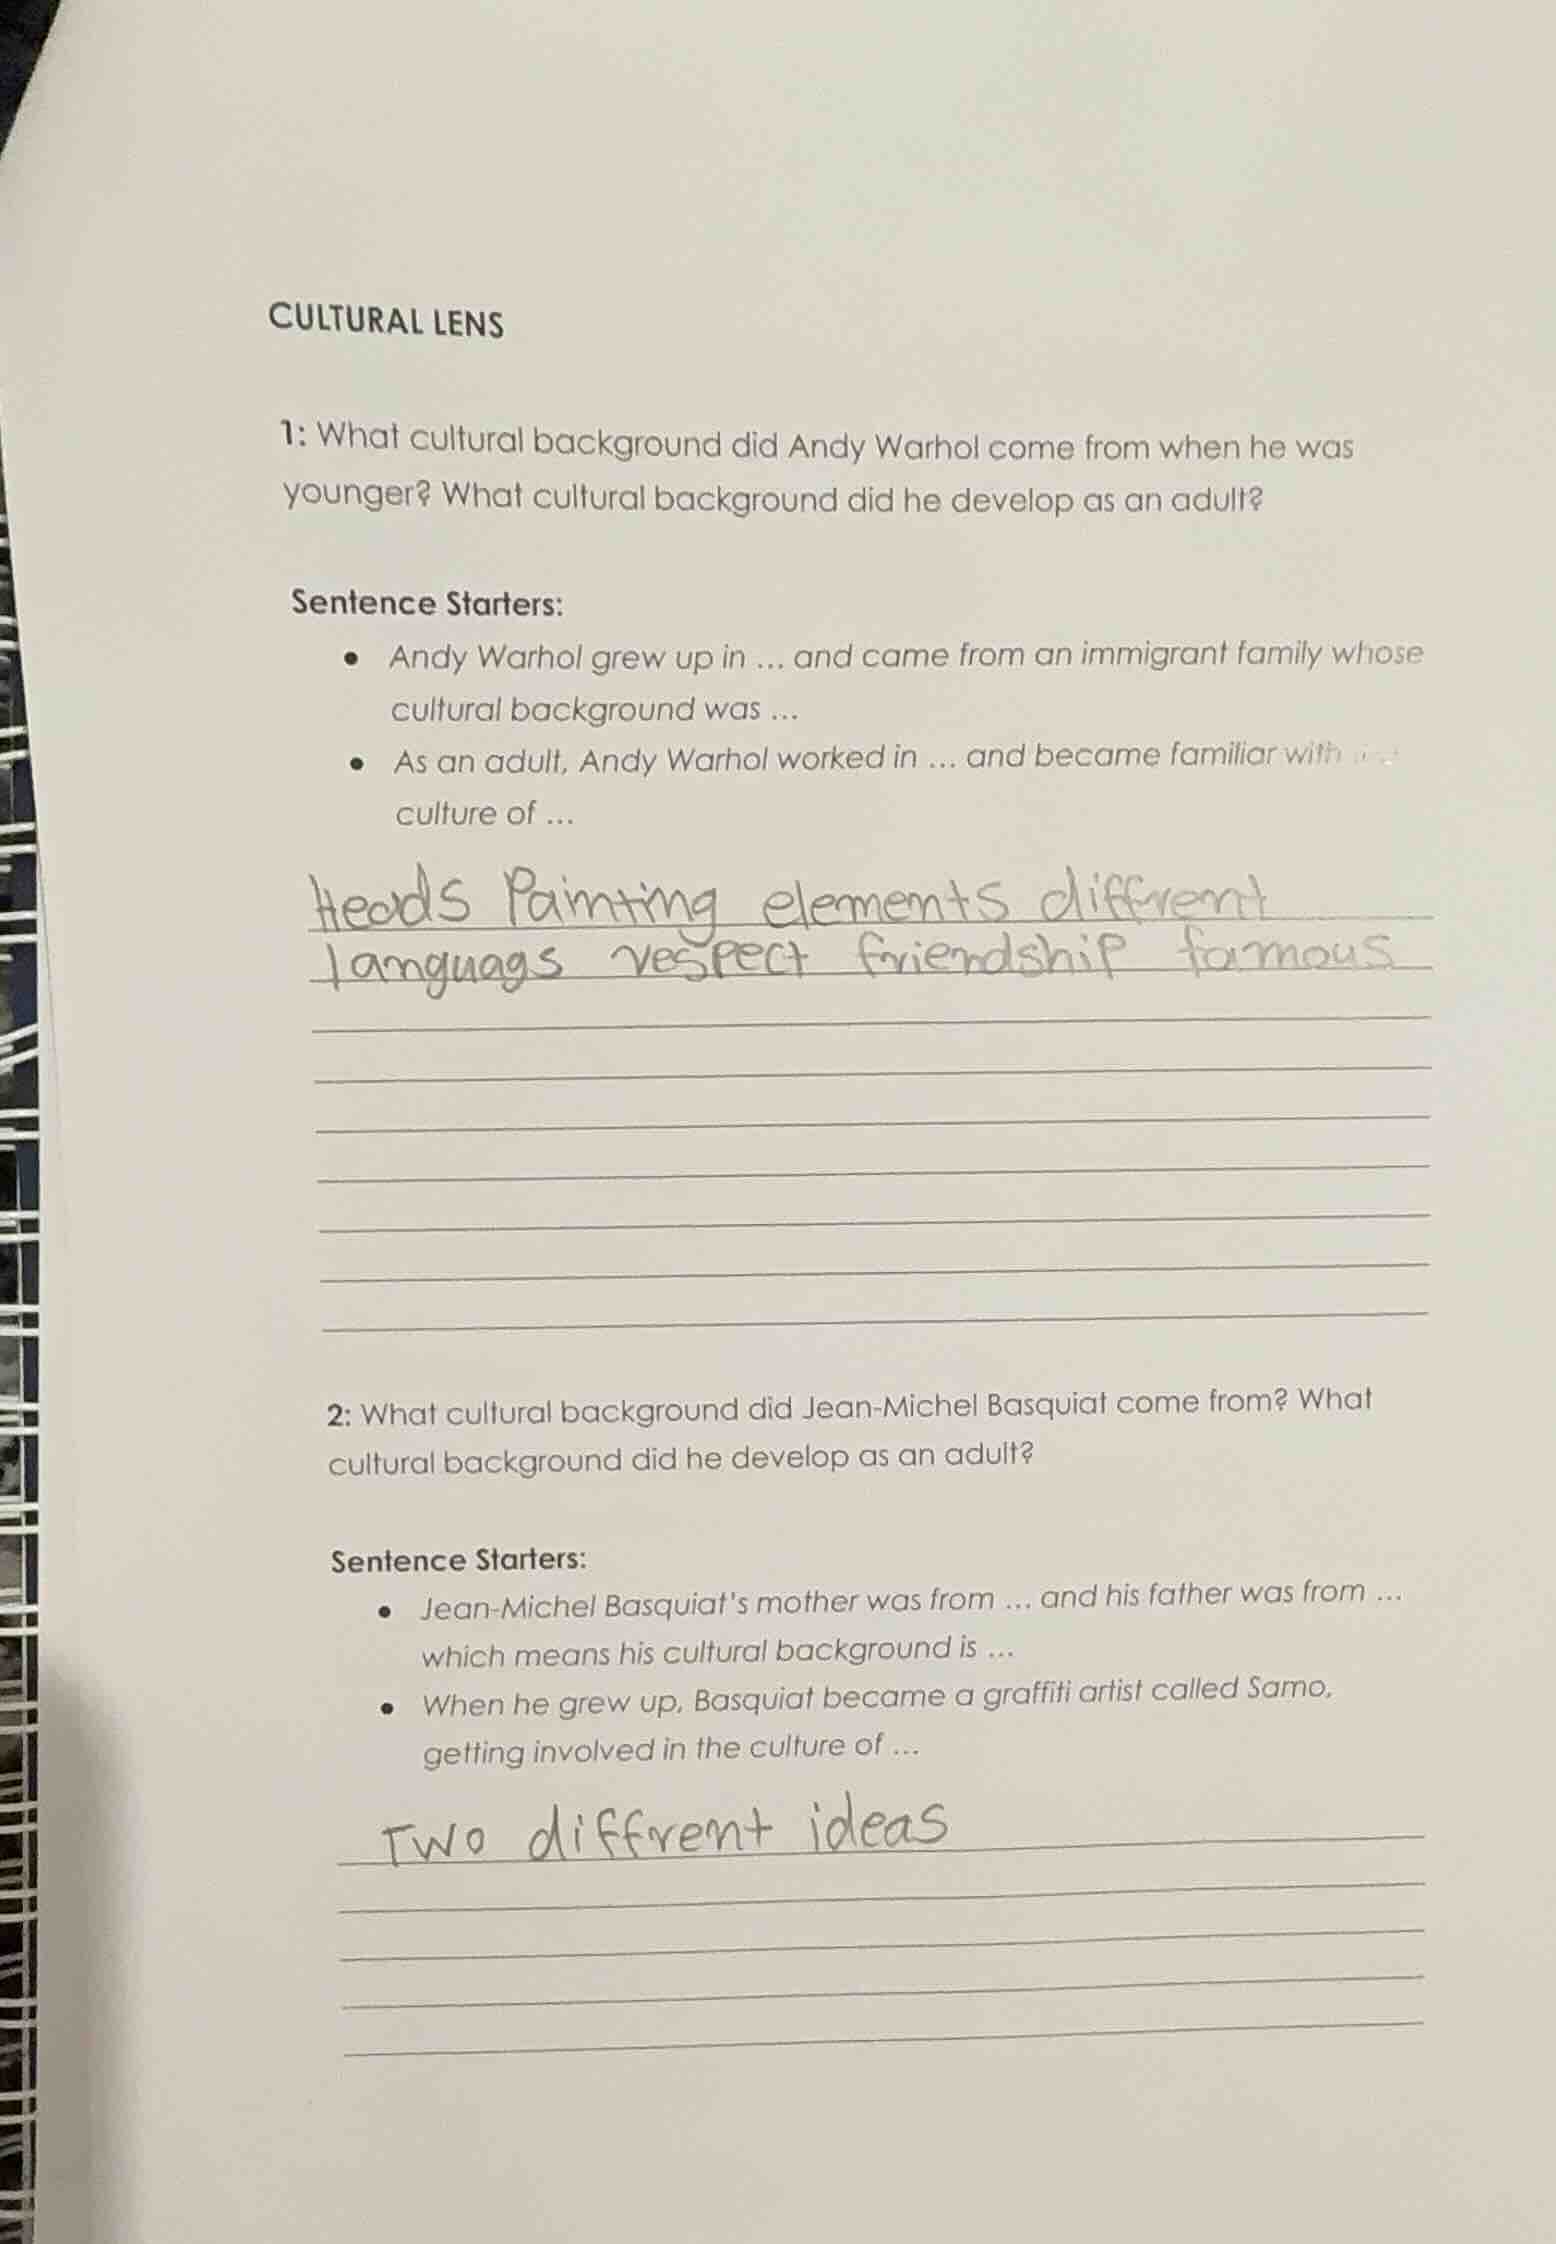 CULTURAL LENS
1: What cultural background did Andy Warhol come from when he was
younger? What cultural background did he develop as an adult?
Sentence Starters:
• Andy Warhol grew up in ... and came from an immigrant family whose
cultural background was ...
• As an adult, Andy Warhol worked in ... and became familiar with
culture of ...
Heads Painting elements diffrent
languags respect friendship famous
2: What cultural background did Jean-Michel Basquiat come from? What
cultural background did he develop as an adult?
Sentence Starters:
• Jean-Michel Basquiat's mother was from ... and his father was from ...
which means his cultural background is ...
• When he grew up, Basquiat became a graffiti artist called Samo,
getting involved in the culture of ...
Two diffrent ideas